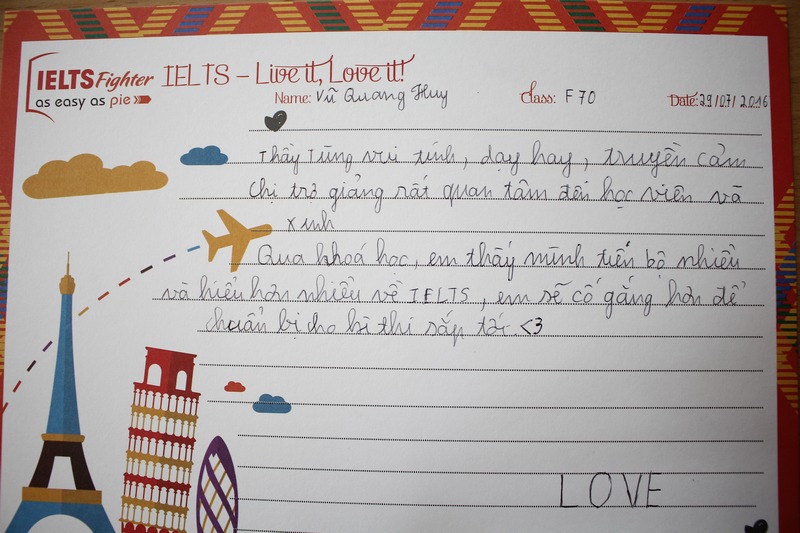 IELTS Fighter
as easy as pie
IELTS – Live it, Love it!
Name: Vũ Quang Huy
Class: F70
Date: 29/07/2016
Thầy Tùng vui tính, dạy hay, truyền cảm
Chị trợ giảng rất quan tâm đến học viên và
xinh
Qua khoá học, em thấy mình tiến bộ nhiều
và hiểu hơn nhiều về IELTS, em sẽ cố gắng hơn để
chuẩn bị cho kì thi sắp tới. <3
LOVE